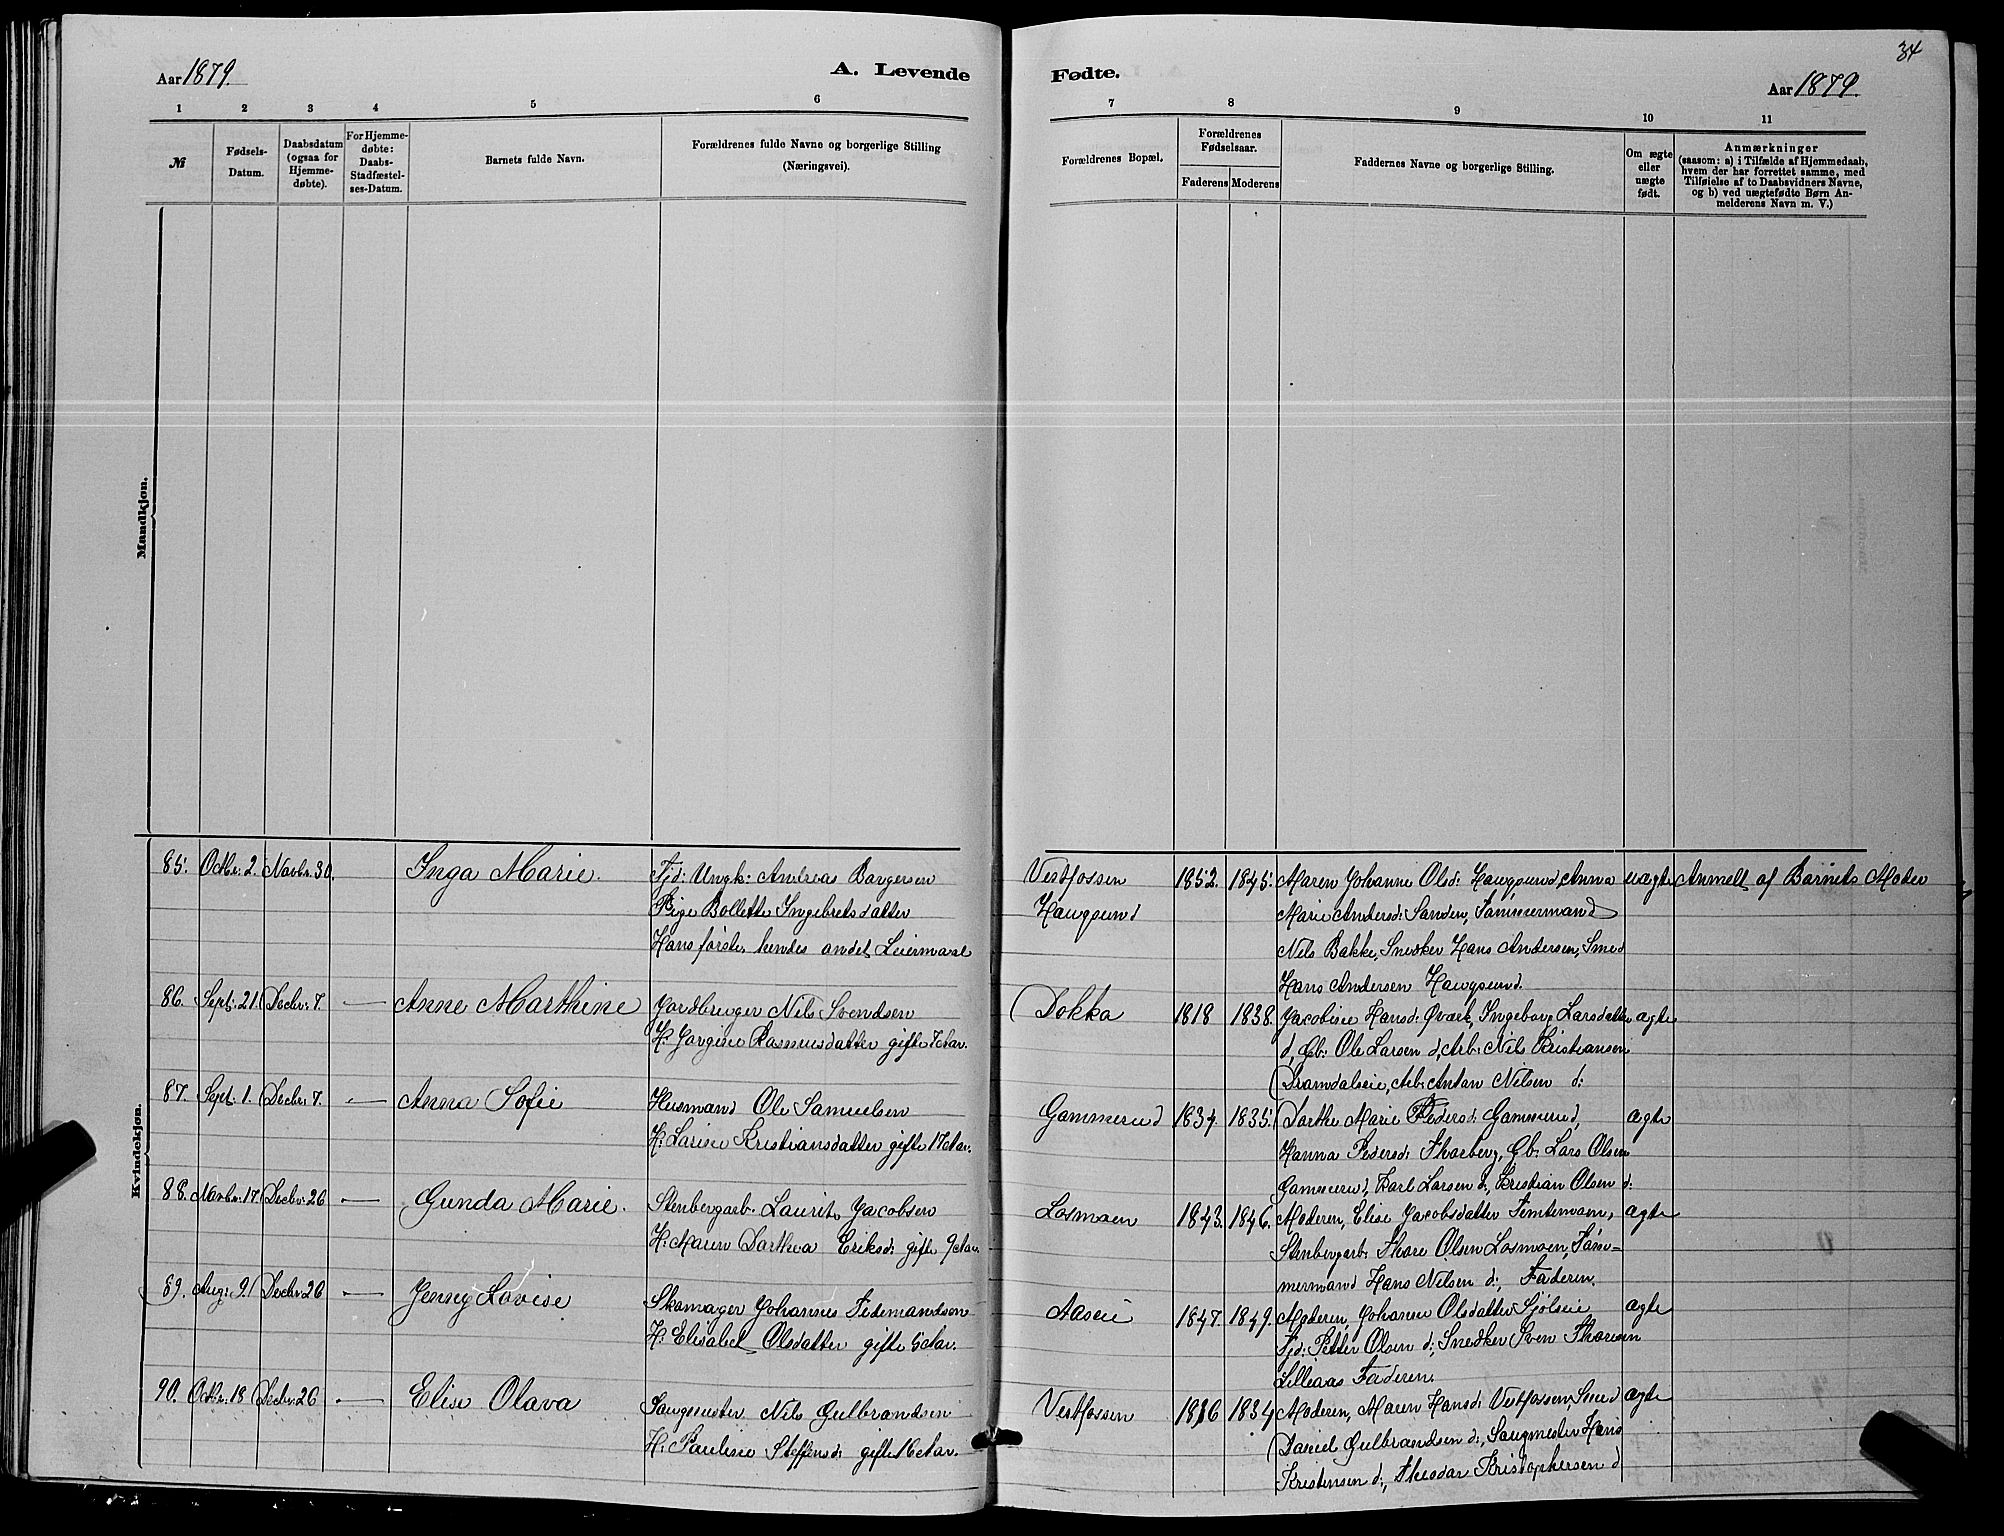 34
Aar 1879.
A. Levende Fødte.
Aar 1879.
1 2 3 4 5 6 7 8 9 10 11
№
Fødsels-Datum.
Daabsdatum (ogsaa for Hjemme-døbte).
For Hjemme-døbte: Daabs-Stadfæstel-ses-Datum.
Barnets fulde Navn.
Forældrenes fulde Navne og borgerlige Stilling (Næringsvei).
Forældrenes Bopæl.
Forældrenes Fødselsaar.
Faderens Moderens
Faddernes Navne og borgerlige Stilling.
Om ægte eller uægte født.
Anmærkninger
(saasom: a) i Tilfælde af Hjemmedaab,
hvem der har forrettet samme, med
Tilføielse af to Daabsvidners Navne,
og b) ved uægtefødte Børn An-
melderens Navn m. V.)
Mandkjøn.
Kvindekjøn.
85. Octbr. 2. Novbr. 30. Inga Marie. Fjd: Ungk: Andreas Borgersen Vestfossen 1852. 1845. Maren Johanne Olsd: Haugsund, Anna uægte Anmelt af Barnets Moder
Pige Bollette Ingebretsdatter Haugsund Marie Andersd: Sanden, Tømmermand
Hans første, hendes andet Leiermaal Nils Bakke, Snedker Hans Andersen, Smed
Hans Andersen Haugsund.
86. Sept: 21. Decbr. 7. — Anne Marthine Jordbruger Nils Svendsen Dokka 1818 1838. Jacobine Hansd: Qværk, Ingeborg Larsdatter ægte
H: Jørgine Rasmusdatter gifte 7 Aar. d, Gb: Ole Larsen d, Arb: Nils Kristiansen
Dramdalseie, Arb: Anton Nilsen d:
87. Sept. 1. Decbr. 7. — Anna Sofie Husmand Ole Samuelsen Gammerud 1834. 1835. Dorthe Marie Pedersd: Gammerud, ægte
H: Larine Kristiansdatter gifte 17 Aar. Hanna Pedersd: Thorberg, Gb: Lars Olsen
Gammerud, Karl Larsen d:, Kristian Olsen d:
88. Novbr. 17. Decbr. 26 — Gunda Marie. Stenbergarb. Laurits Jacobsen Losmoen 1843. 1846. Moderen, Elise Jacobsdatter ægte
H: Maren Dorthea Eriksd: gifte 9 Aar. Stenbergarb: Thore Olsen Losmoen, Tøm-
mermand Hans Nilsen d:, Faderen.
89. Aug: 9. Decbr. 26 — Jenny Lovise Skomager Johannes Aaseie 1847. 1849. Moderen, Johanne Olsdatter Sjølseie ægte
H: Elisabet Olsdatter gifte 6 Aar. Fjd: Petter Olsen d:, Snedker Sven Thoresen
Lilleaas Faderen.
90. Octbr. 18 Decbr. 26 — Elise Olava Saugmester Nils Gulbrandsen Vestfossen 1836 1834 Moderen, Maren Hansd: Vestfossen, Smed ægte
H: Pauline Steffensd: gifte 16 Aar. Daniel Gulbrandsen d:, Saugmester Hans
Kristensen d:, Theodor Kristophersen d